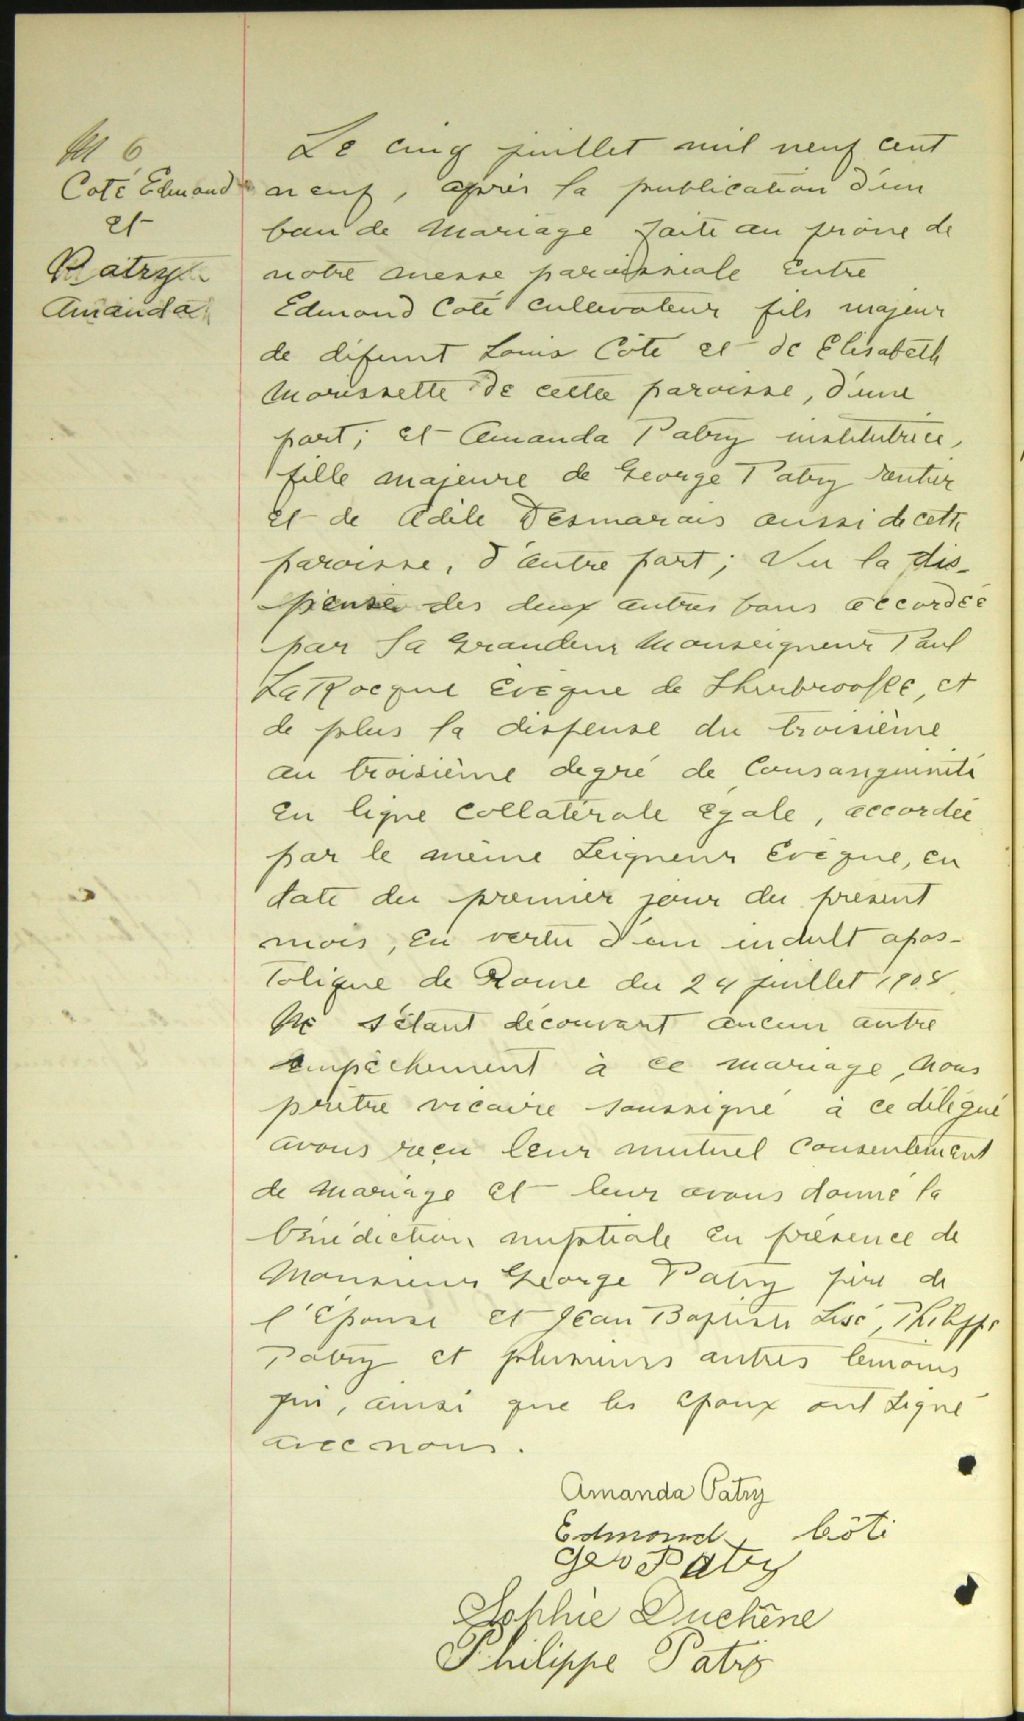 M 6
Coté Edmond
et
Patry
Amanda
Le cinq juillet mil neuf cent
neuf, après la publication d'un
ban de mariage faite au prône de
notre messe paroissiale entre
Edmond Coté cultivateur fils majeur
de défunt Louis Côté et de Elisabeth
Morissette de cette paroisse, d'une
part; et Amanda Patry institutrice,
fille majeure de George Patry rentier
et de Adèle Desmarais aussi de cette
paroisse, d'autre part; Vu la dis-
pense des deux autres bans accordée
par Sa Grandeur Monseigneur Paul
LaRocque Evêque de Sherbrooke, et
de plus la dispense du troisième
au troisième degré de Consanguinité
en ligne collatérale égale, accordée
par le même Seigneur Evêque, en
date du premier jour du présent
mois, en vertu d'un indult apos-
tolique de Rome du 24 juillet 1908.
Ne s'étant découvert aucun autre
empêchement à ce mariage, nous
prêtre vicaire soussigné à ce délégué
avons reçu leur mutuel consentement
de mariage et leur avons donné la
bénédiction nuptiale en présence de
Monsieur George Patry père de
l'épouse et Jean Baptiste Philippe
Patry et plusieurs autres témoins
qui, ainsi que les époux ont signé
avec nous.
Amanda Patry
Edmond Côté
Geo Patry
Sophie Duchêne
Philippe Patry